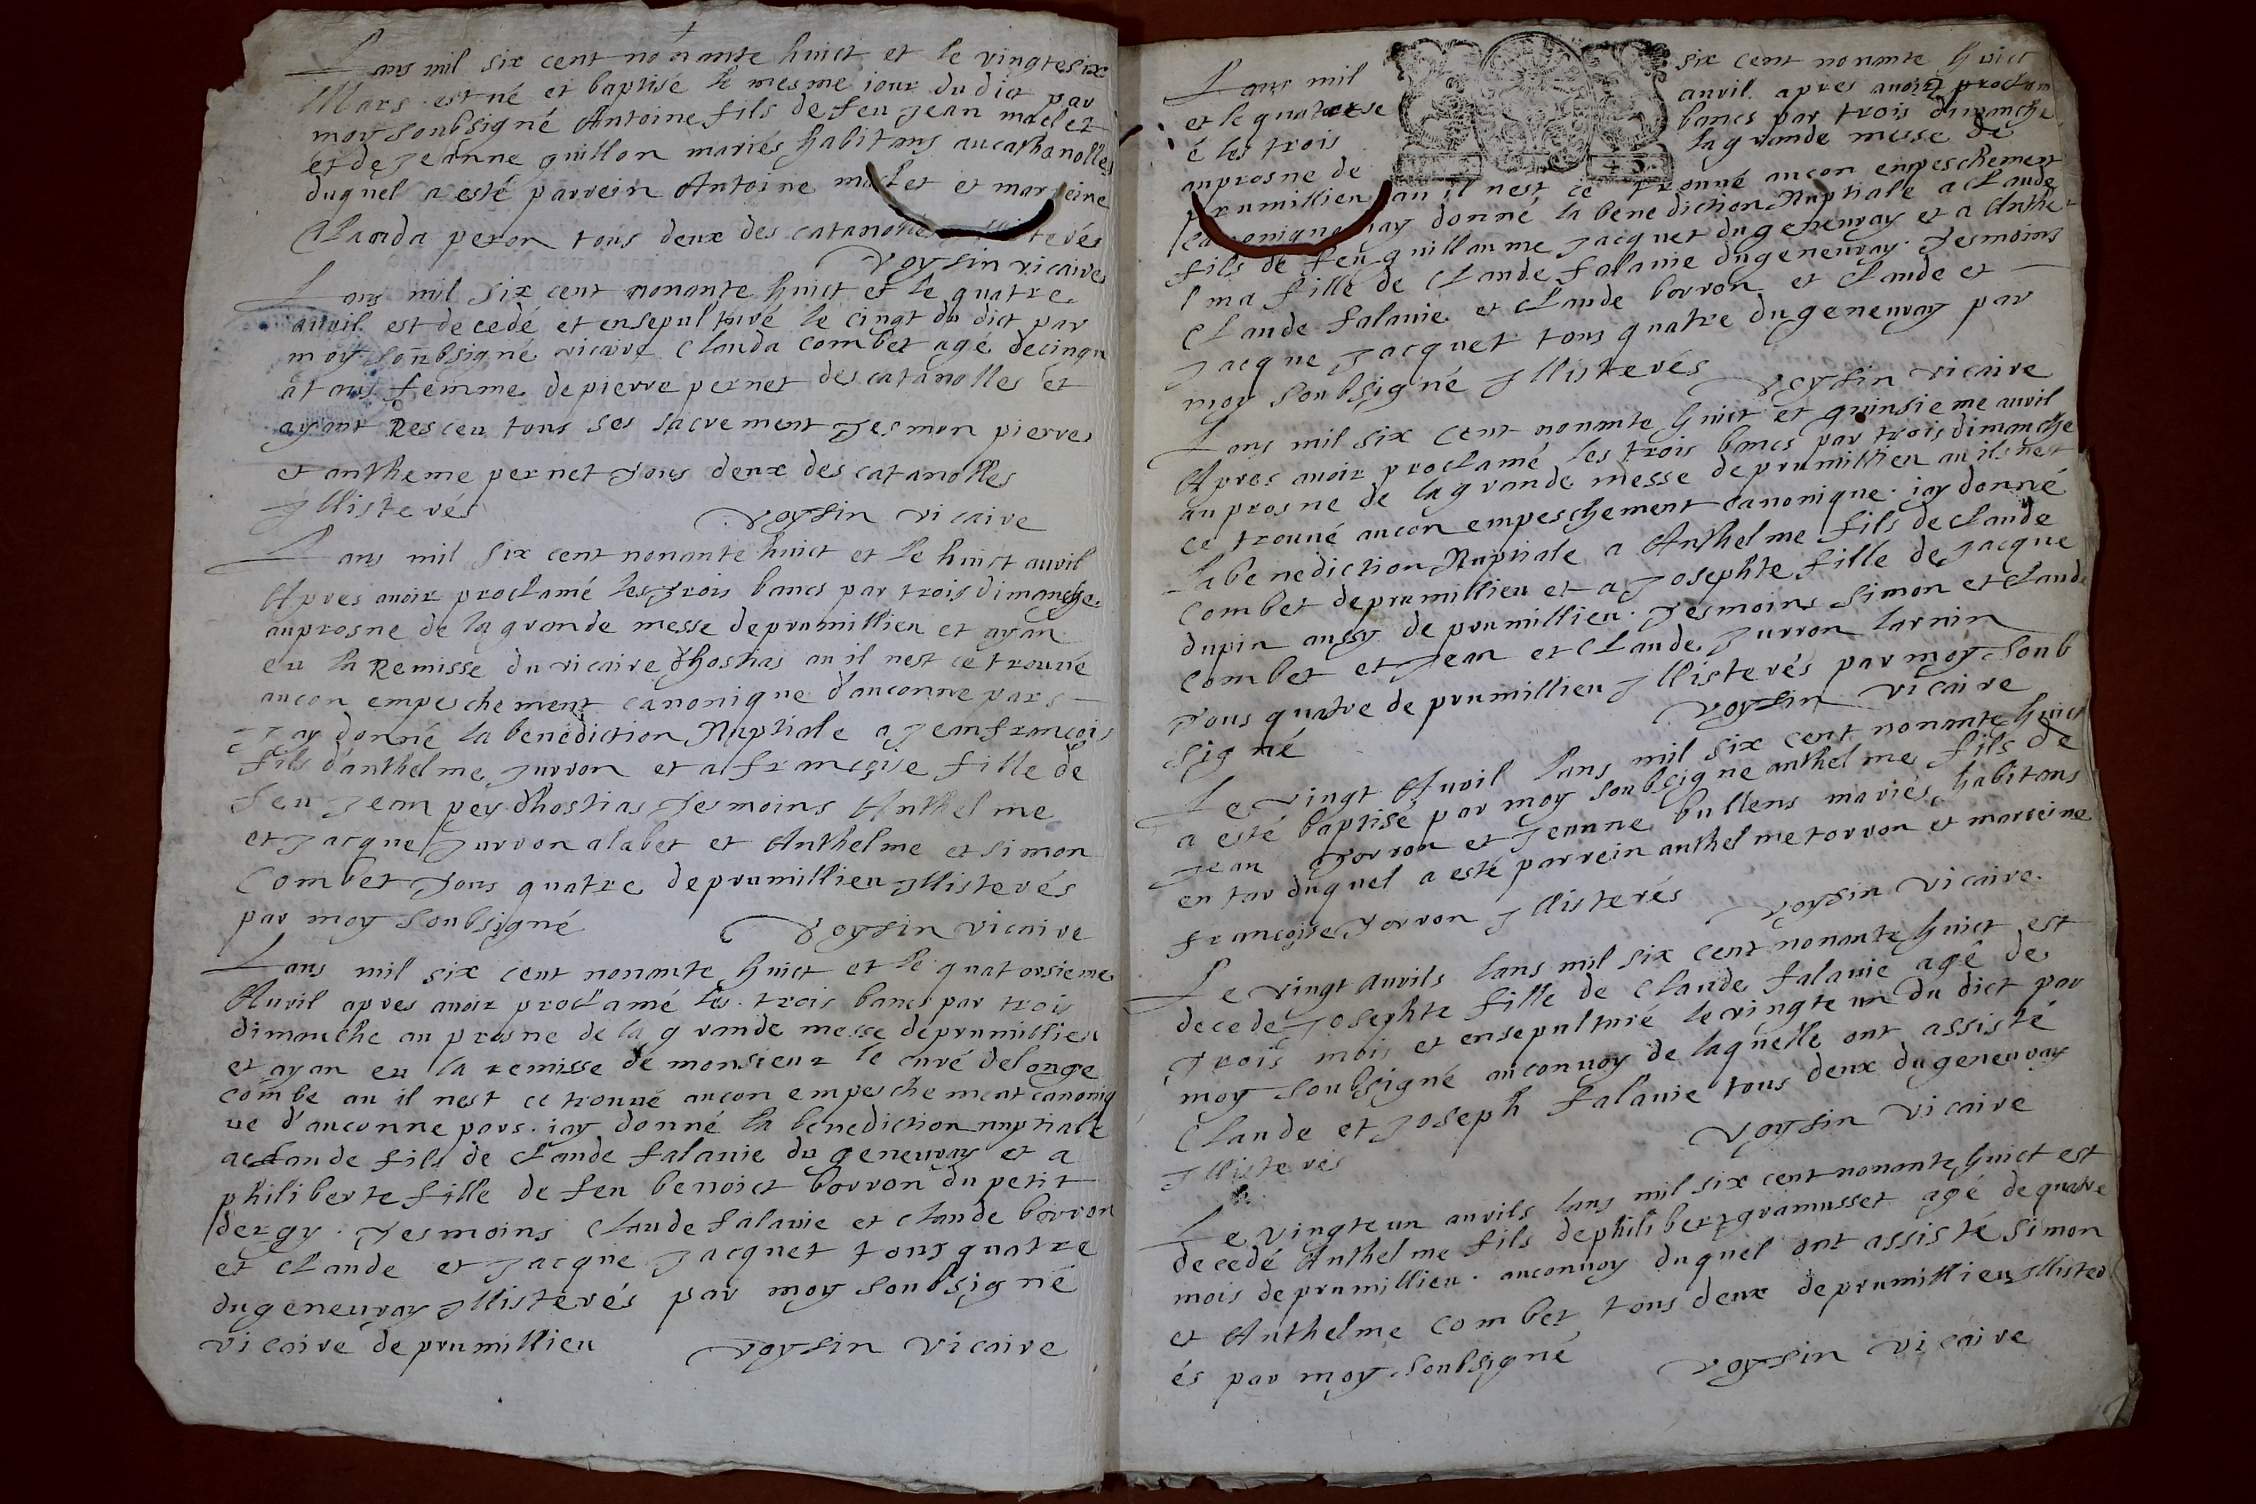 Lans mil six cent nonante huict et le vingtesix
Mars est né et baptisé le mesme iour du dict par
moy soubsigné Antoine fils de feu Jean maclet
et de Jeanne guillon mariés habitans aucathanolles
duquel a esté parrein Antoine maclet et marreine
Clauda peron tous deux des catanolles Illisterés
Voysin vicaires
Lans mil six cent nonante huict et le quatre
auvil est decedé et ensepulturé le cingt du dict par
moy soubsigné vicaire Clauda combet agé decinqu
at ans femme de pierre pernet des catanolles et
ayant Resceu tous ses sacrement Tesmon pierres
et antheme pernet Tous deux des catanolles
Illisterés voysin vicaire
Lans mil six cent nonante huict et le huict auvil
Apres avoir proclamé les trois bancs par trois dimanche
auprosne de la grande messe deprumillieu et ayan
eu la Remisse du vicaire dhostias au il nest ce trouvé
aucon empeschement canonique d'auconne pars
Jay donné la benediction Nuptiale a Jeanfrançois
fils danthelme Jurron et a françoise fille de
feu Jean pey dhostias Tesmoins Anthelme
et Jacque Jurron alabet et Anthelme et simon
Combet Tous quatre deprumillieu Illisterés
par moy soubsigné Voysin vicaire
Lans mil six cent nonante huict et le quatorsieme
Auvil apres avoir proclamé les trois bancs par trois
dimanche au prosne de la grande messe deprumillieu
et ayan eu la remisse de monsieur le curé delonge
combe au il nest ce trouvé aucon empeschement canoniq
ue d'auconne pars iay donné la benediction nuptiale
aclaude fils de claude falavie du genevray et a
philiberte fille de feu benoict borron du petit
dergy Tesmoins claude falavie et claude borron
et claude et Jacque Jacquet tous quatre
dugenevray Illisterés par moy soubsigné
vicaire deprumillieu voysin vicaire
Lans mil six cent nonante huict
et le quatorse auvil apres avoir proclam
é les trois bancs par trois dimanche
auprosne de la grande messe de
prumillieu au il nest ce trouvé aucon empeschement
canonique iay donné la benediction Nuptiale a claude
fils de feu guillaume Jacquet dugenevray et a Anthe
lma fille de claude falavie dugenevray Tesmoins
claude falavie et claude borron et claude et
Jacque Jacquet tous quatre dugenevray par
moy soubsigné Illisterés voysin vicaire
Lans mil six cent nonante huict et quinsieme auvil
Apres avoir proclamé les trois bancs par trois dimanche
auprosne de la grande messe deprumillieu au il nest
ce trouvé aucon empeschement canonique iay donné
la benediction Nuptiale a Anthelme fils de claude
Combet deprumillieu et a Josephte fille de Jacque
dupin aussy de prumillieu Tesmoins simon et claude
Combet et Jean et Claude Jurron larnin
Tous quatre de prumillieu Illisterés par moy soub
signé voysin vicaire
Le vingt Auvil lans mil six cent nonante huict
a esté baptisé par moy soubsigne anthelme fils de
Jean Torron et Jeanne bullens mariés habitans
en tar duquel a esté parrein anthelme torron et marreine
françoise Torron Illisterés voysin vicaire
Le vingt auvils lans mil six cent nonante huict est
decede Josephte fille de claude falavie agé de
trois mois et ensepulturé le vingte un du dict par
moy soubsigné auconvoy de laquelle ont assisté
Claude et Joseph falavie tous deux dugenevray
Illisterés voysin vicaire
Le vingteun auvils lans mil six cent nonante huict est
decedé Anthelme fils dephilibert gramusset agé de quatre
mois de prumillieu auconvoy duquel ont assisté simon
et Anthelme combet tous deux deprumillieu Illister
és par moy soubsigné voysin vicaire